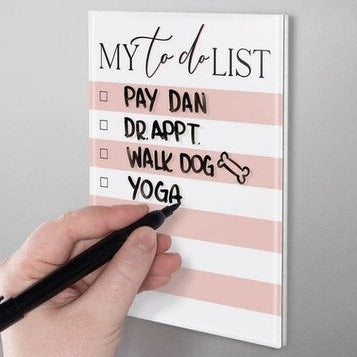 MY to do LIST
PAY DAN
DR. APPT.
WALK DOG
YOGA